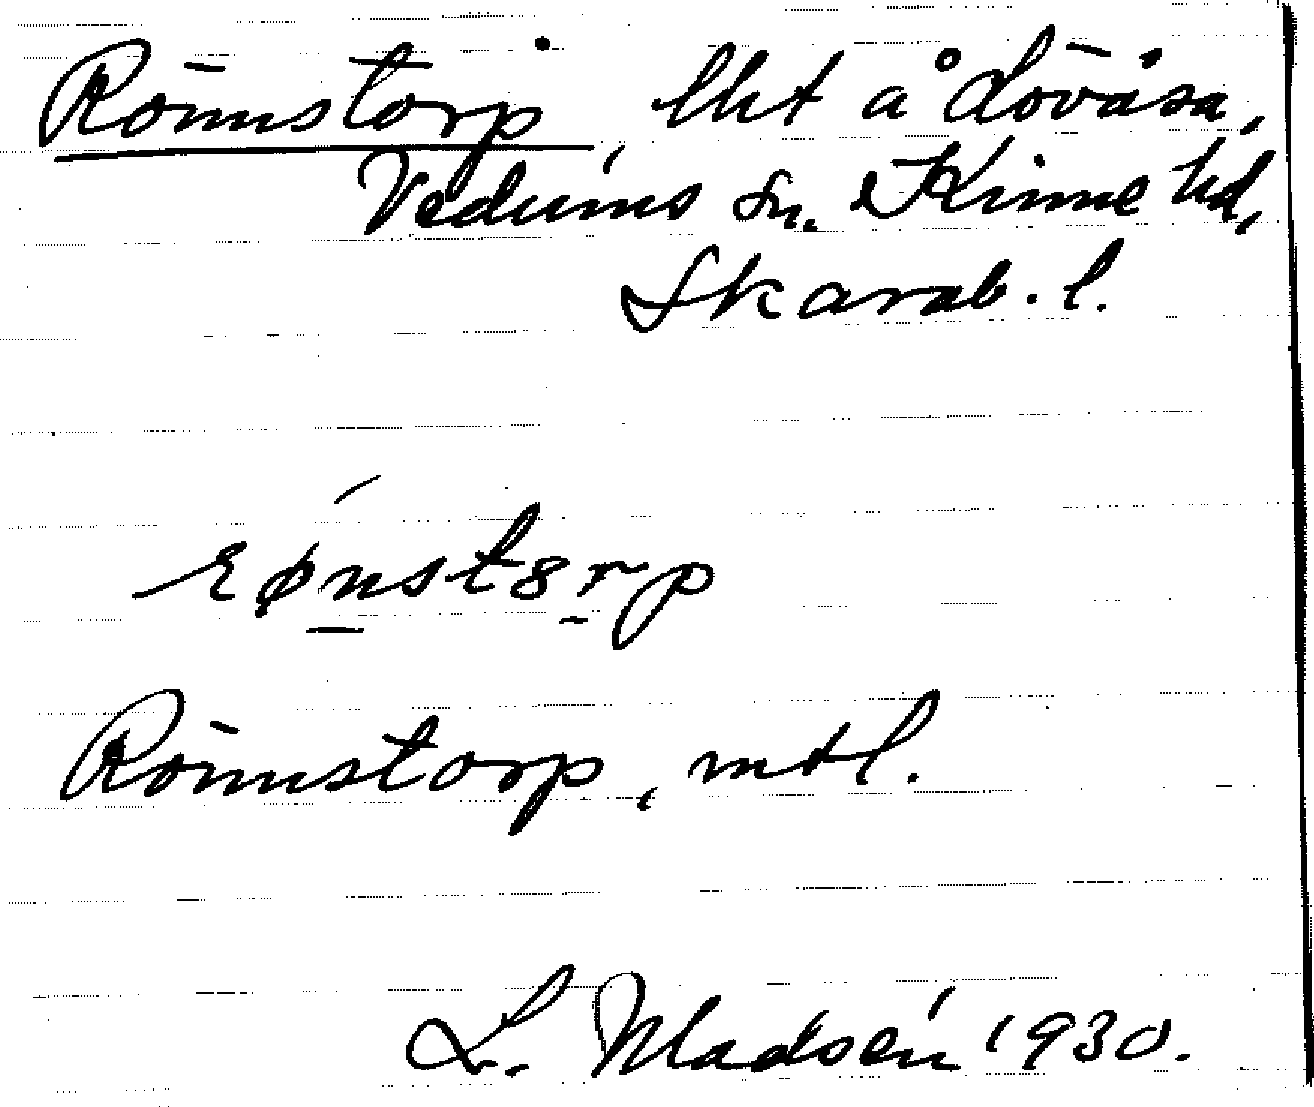 Rönnstorp, lht å Lövåsa,
Vedums sn. Kinne hd,
Skarab. l.
rønstɵrp
Rönnstorp, mtl.
L. Madsén 1930.